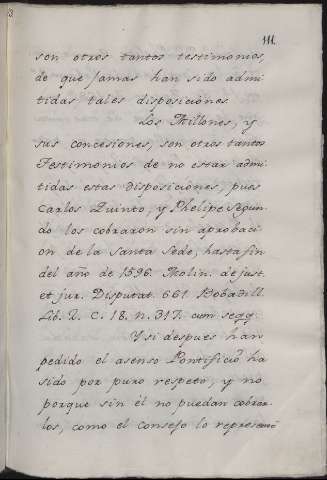 111.
son otros tantos testimonios,
de que jamas han sido admi-
tidas tales disposiciones.
Los Millones, y
sus concesiones, son otros tantos
Testimonios de no estar admi-
tidas estas disposiciones, pues
Carlos Quinto, y Phelipe Segun-
do los cobraron sin aprobaci-
on de la Santa Sede, hasta fin
del año de 1596. Molin. de just.
et jur. Disputat. 661. Bobadill.
Lib. 2. C. 18. n. 317. cum segq.
Y si despues han
pedido el asenso Pontificio ha
sido por puro respeto, y no
porque sin él no puedan cobrar-
los, como el Consejo lo representó